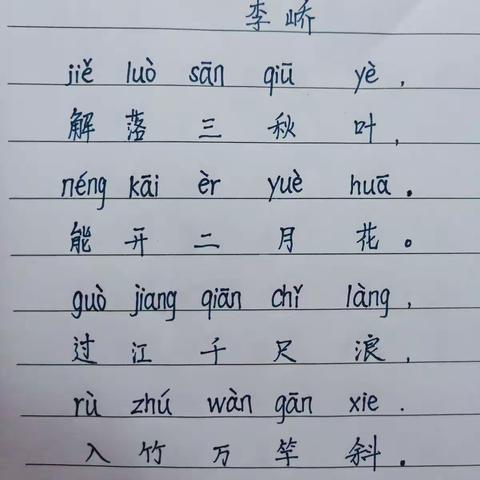 李峤
jiě luò sān qiū yè，
解落三秋叶，
néng kāi èr yuè huā。
能开二月花。
guò jiang qiān chǐ làng，
过江千尺浪，
rù zhú wàn gān xie．
入竹万竿斜。